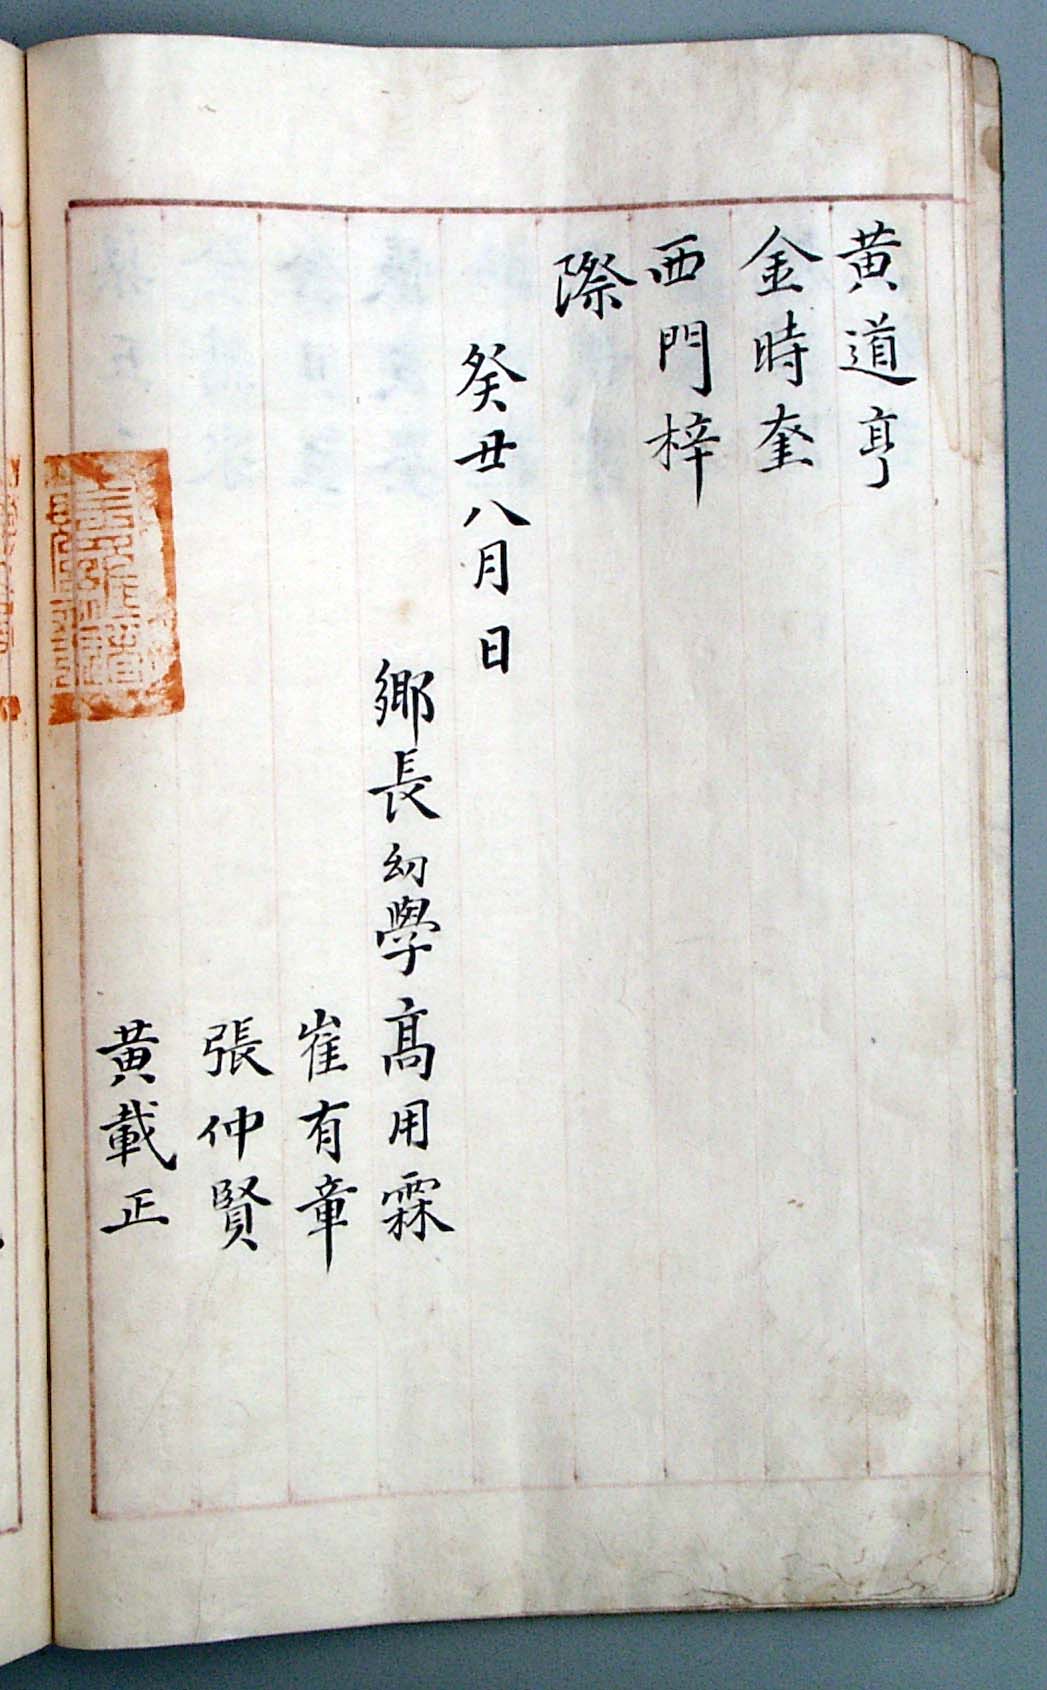 黃道亨
金時奎
西門梓
際
癸丑八月 日
鄉長幼學高用霖
崔有章
張仲賢
黃載正